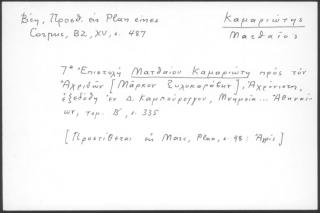 Βέη, Προσθ. εἰς Plan eines
Corpus, BZ, XV, σ. 487
Καμαριώτης
Ματθαῖος
7η Ἐπιστολὴ Ματθαίου Καμαριώτη πρὸς τὸν
Ἀχριδῶν [Μᾶρκον Ξυλοκαράβην], Ἀχρόνιστη,
ἐξεδόθη ἐν Δ. Καμπούρογλου, Μνημεῖα... Ἀθηναίων,
τομ. Β', σ. 335
[Προστίθεται εἰς Marc, Plan, σ. 98:]